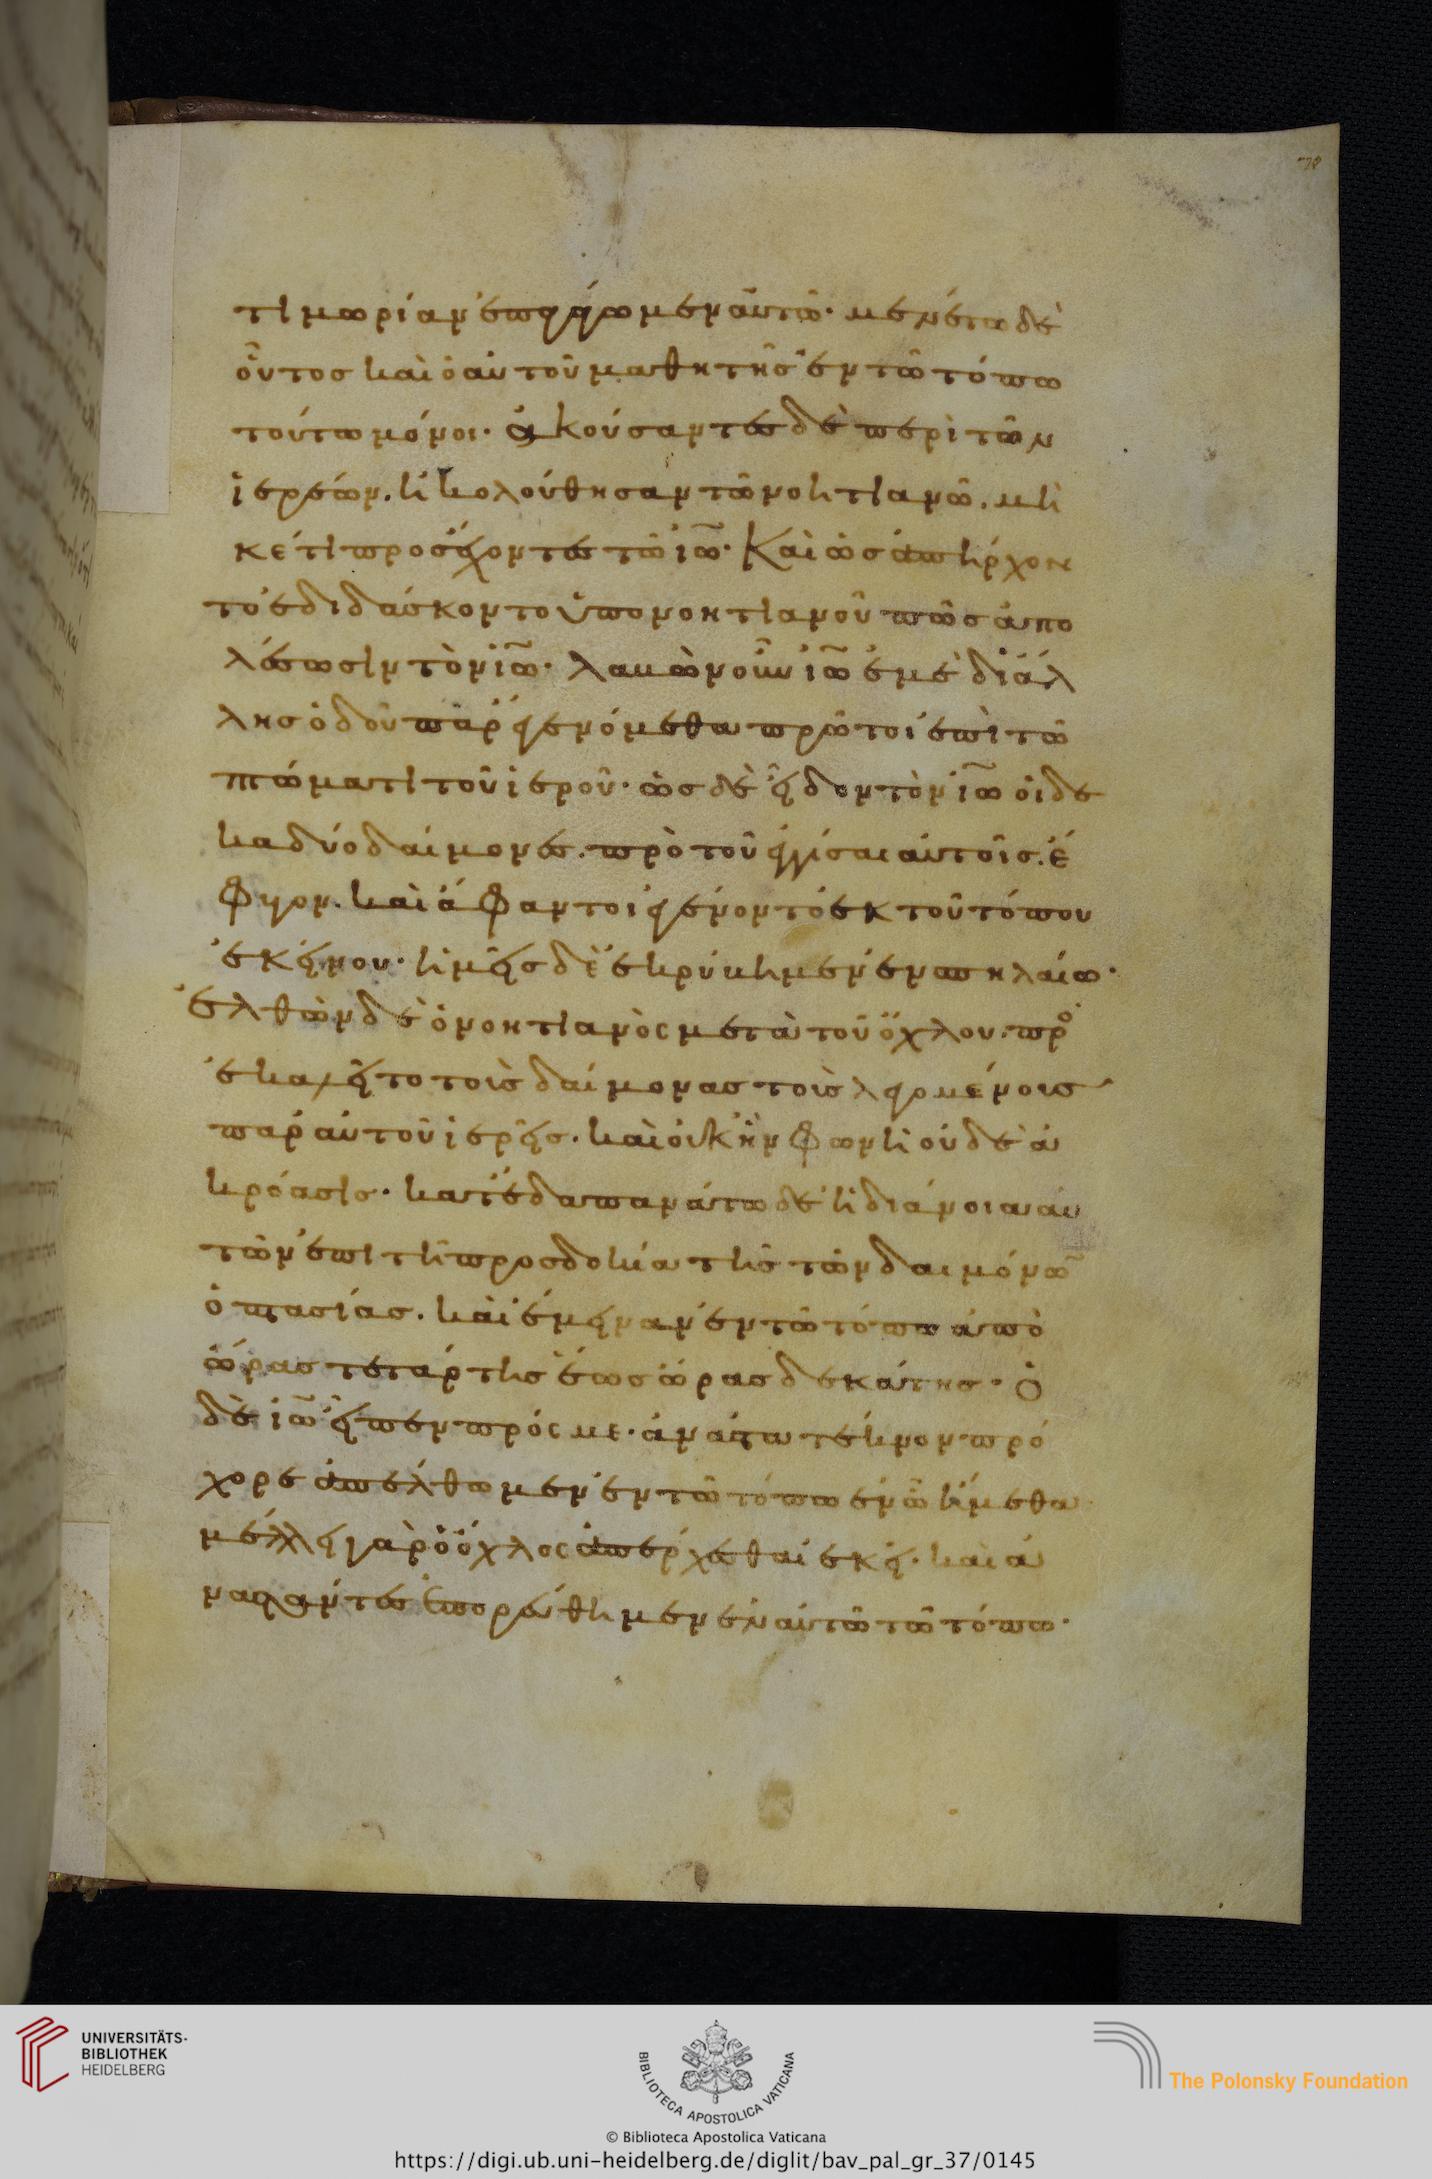 78
τιμωρίαν ἐπαγάγωμεν αὐτῶ· μενέτω δὲ
οὗντος καὶ ὁ αὐτοῦ μαθητῆς ἐν τῶ τόπω
τούτω μόνοι· ἀκούσαντες δὲ περὶ τῶν
ἱερέων. ἠκολούθησαν τῶ νοητιανῶ. μὴ
κέτι προσέχοντες τῶ ἰω̅· Καὶ ὡς ἀπήρχον
το ἐδιδάσκοντο ὑπο νοητιανοῦ πῶς ἀπο
λέσωσιν τὸν ἰω̅· λαβὼν οὖν ἰω̅ ἐμὲ δι ἄλ
λης ὁδοῦ παρεγενόμεθα πρῶτοι ἐπὶ τῶ
πτώματι τοῦ ἱεροῦ· ὡς δὲ εἶδον τὸν ἰω̅ οἱ δε
καδύο δαίμονες. πρὸ τοῦ ἐγγίσαι αὐτοῖς. ἔ
φυγον. καὶ ἄφαντοι ἐγένοντο ἐκ τοῦ τόπου
ἐκείνου· ἡμεῖς δὲ ἐκρύβημεν ἐν σπηλαίω·
ἐλθὼν δὲ ὁ νοητιανὸς μετὰ τοῦ ὄχλου. προ
ἐκαλεῖτο τοὶς δαίμονας τοὶς λεγομένοις
παρ αὐτοῦ ἱερεῖς. καὶ οὐκ ἦν φωνὴ οὐδὲ ἀ
κρόασις· κατεδαπανάτω δὲ ἡ διάνοια αὐ
τῶν ἐπι τῆ προσδοκία τῆς τῶν δαιμόνω̅
ὀπτασίας. καὶ ἐμειναν ἐν τῶ τόπω ἀπὸ
ὥρας τετάρτης ἕως ὥρας δεκάτης· Ὁ
δὲ ἰω̅ εἶπεν πρός με· ἀνάστα τέκνον πρό
χορε ἀπέλθωμεν ἐν τῶ τόπω ἐν ὧ ἤμεθα
μέλλει γαρ ὁ ὄχλος ἀπέρχεσθαι ἐκεῖ· καὶ ἀ
ναστάντες ἐπορεύθημεν ἐν αὐτῶ τῶ τόπω·
UNIVERSITÄTS-
BIBLIOTHEK
HEIDELBERG
BIBLIOTECA APOSTOLICA VATICANA
The Polonsky Foundation
© Biblioteca Apostolica Vaticana
https://digi.ub.uni-heidelberg.de/diglit/bav_pal_gr_37/0145